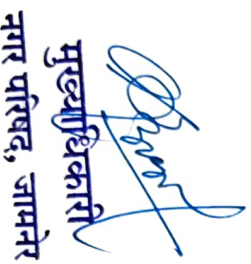 मुख्याधिकारी
नगर परिषद, जामनेर